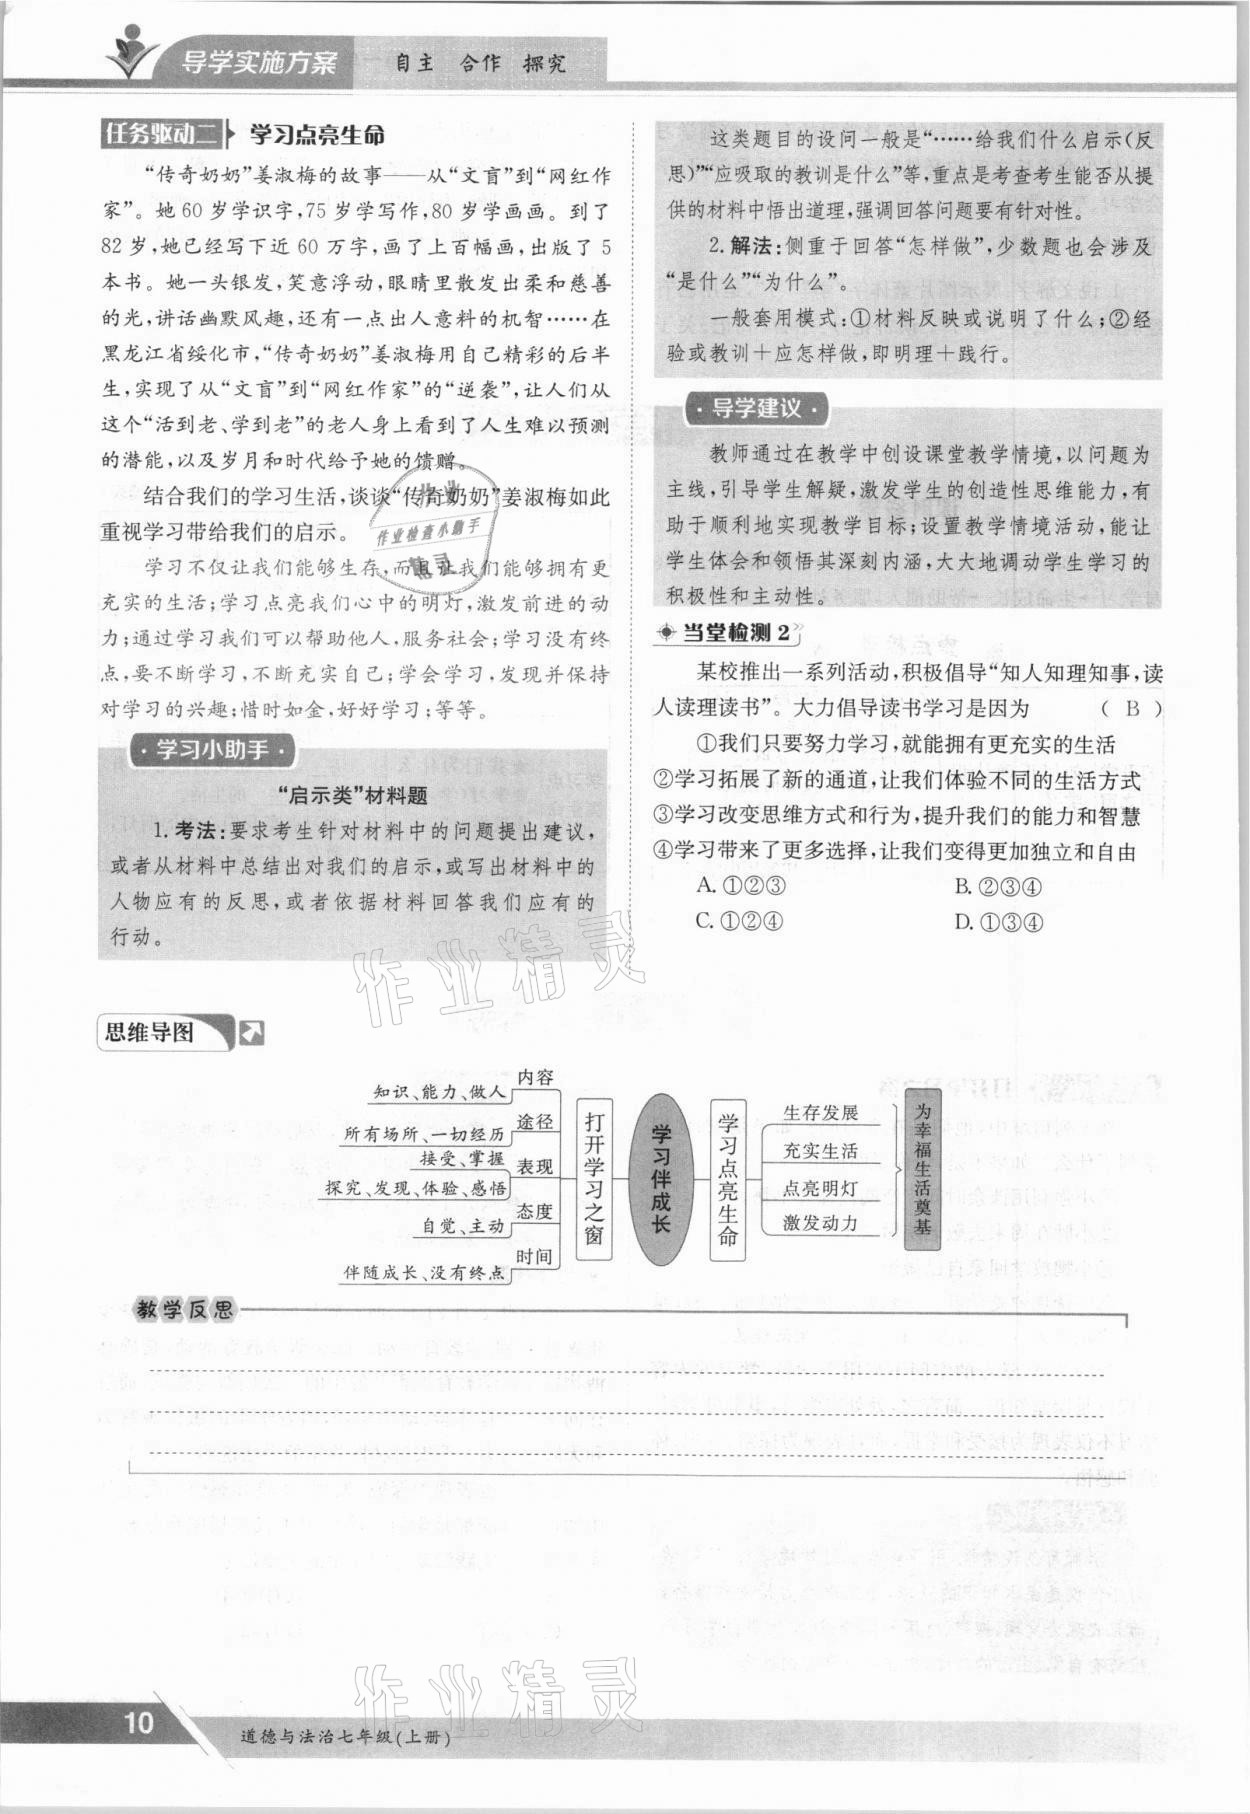 导学实施方案
自主 合作 探究
任务驱动二 学习点亮生命
“传奇奶奶”姜淑梅的故事——从“文盲”到“网红作
家”。她 60 岁学识字,75 岁学写作,80 岁学画画。到了
82 岁,她已经写下近 60 万字,画了上百幅画,出版了 5
本书。她一头银发,笑意浮动,眼睛里散发出柔和慈善
的光,讲话幽默风趣,还有一点出人意料的机智……在
黑龙江省绥化市,“传奇奶奶”姜淑梅用自己精彩的后半
生,实现了从“文盲”到“网红作家”的“逆袭”,让人们从
这个“活到老、学到老”的老人身上看到了人生难以预测
的潜能,以及岁月和时代给予她的馈赠。
结合我们的学习生活,谈谈“传奇奶奶”姜淑梅如此
重视学习带给我们的启示。
学习不仅让我们能够生存,而且让我们能够拥有更
充实的生活;学习点亮我们心中的明灯,激发前进的动
力;通过学习我们可以帮助他人,服务社会;学习没有终
点,要不断学习、不断充实自己;学会学习,发现并保持
对学习的兴趣;惜时如金,好好学习;等等。
·学习小助手·
“启示类”材料题
1. 考法:要求考生针对材料中的问题提出建议,
或者从材料中总结出对我们的启示,或写出材料中的
人物应有的反思,或者依据材料回答我们应有的
行动。
这类题目的设问一般是“……给我们什么启示(反
思)”“应吸取的教训是什么”等,重点是考查考生能否从提
供的材料中悟出道理,强调回答问题要有针对性。
2. 解法:侧重于回答“怎样做”,少数题也会涉及
“是什么”“为什么”。
一般套用模式:①材料反映或说明了什么;②经
验或教训+应怎样做,即明理+践行。
·导学建议·
教师通过在教学中创设课堂教学情境,以问题为
主线,引导学生解疑,激发学生的创造性思维能力,有
助于顺利地实现教学目标;设置教学情境活动,能让
学生体会和领悟其深刻内涵,大大地调动学生学习的
积极性和主动性。
当堂检测 2
某校推出一系列活动,积极倡导“知人知理知事,读
人读理读书”。大力倡导读书学习是因为 ( B )
①我们只要努力学习,就能拥有更充实的生活
②学习拓展了新的通道,让我们体验不同的生活方式
③学习改变思维方式和行为,提升我们的能力和智慧
④学习带来了更多选择,让我们变得更加独立和自由
A. ①②③ B. ②③④
C. ①②④ D. ①③④
作业
作业检查小助手
慧灵
作业精灵
思维导图
内容
知识、能力、做人
途径
所有场所、一切经历
接受、掌握
表现
探究、发现、体验、感悟
态度
自觉、主动
时间
伴随成长、没有终点
打开学习之窗
学习伴成长
学习点亮生命
生存发展
充实生活
点亮明灯
激发动力
为幸福生活奠基
教学反思
作业精灵
10
道德与法治七年级(上册)